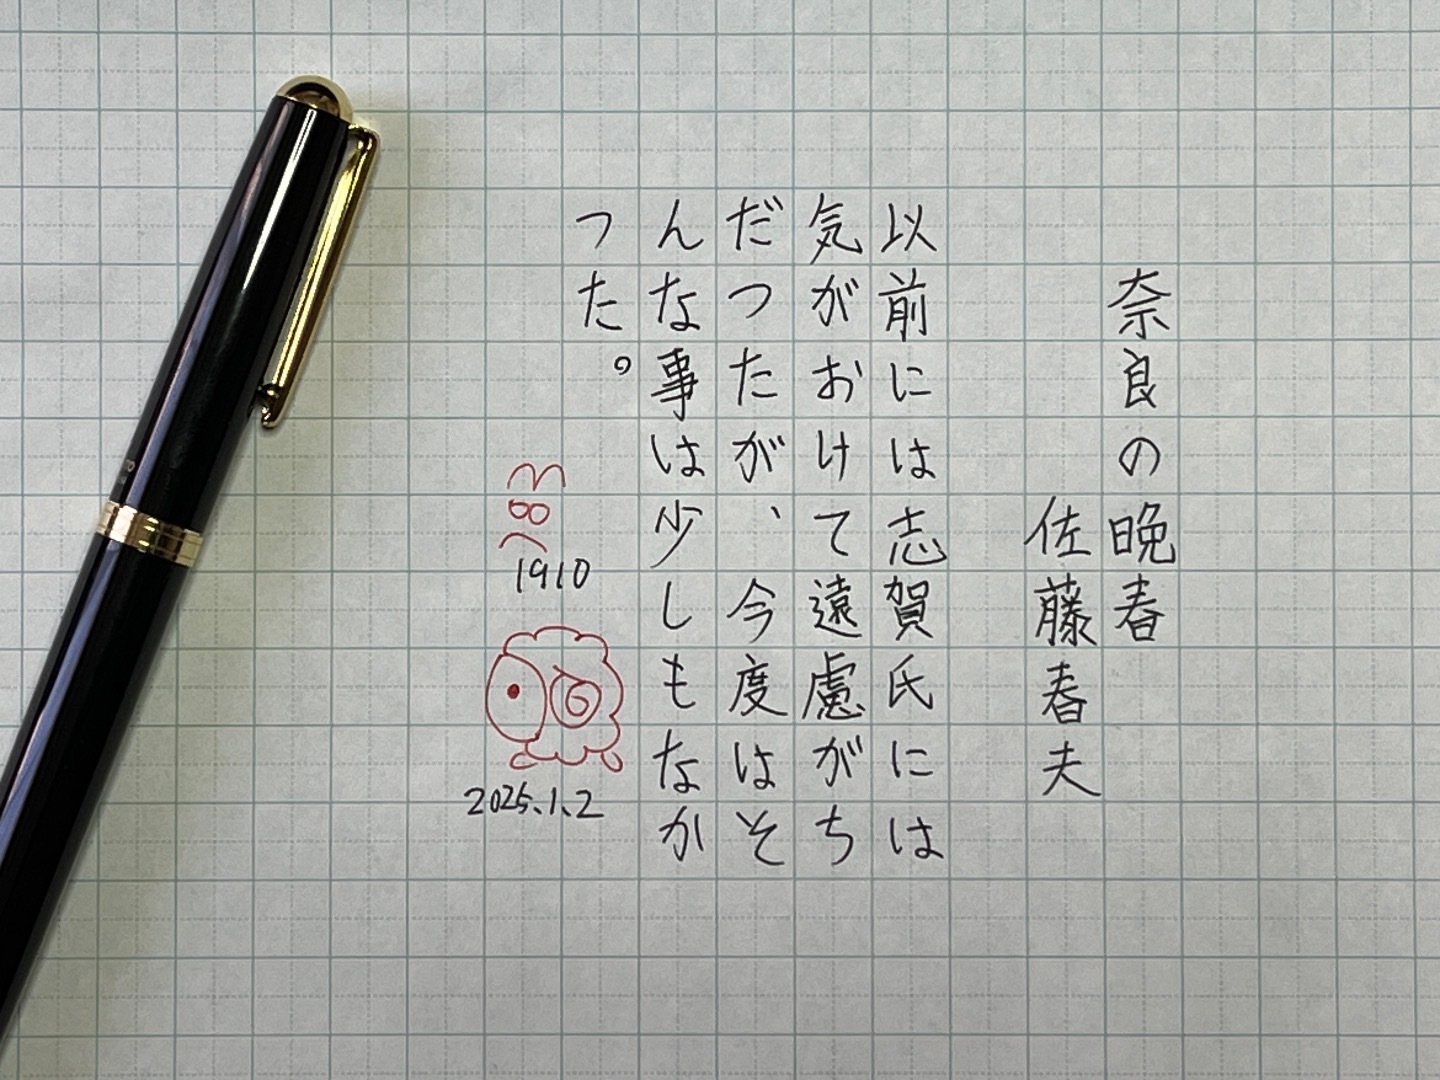 奈良の晩春
佐藤春夫
以前には志賀氏には
気がおけて遠慮がち
だつたが、今度はそ
んな事は少しもなか
つた。
1910
2025.1.2